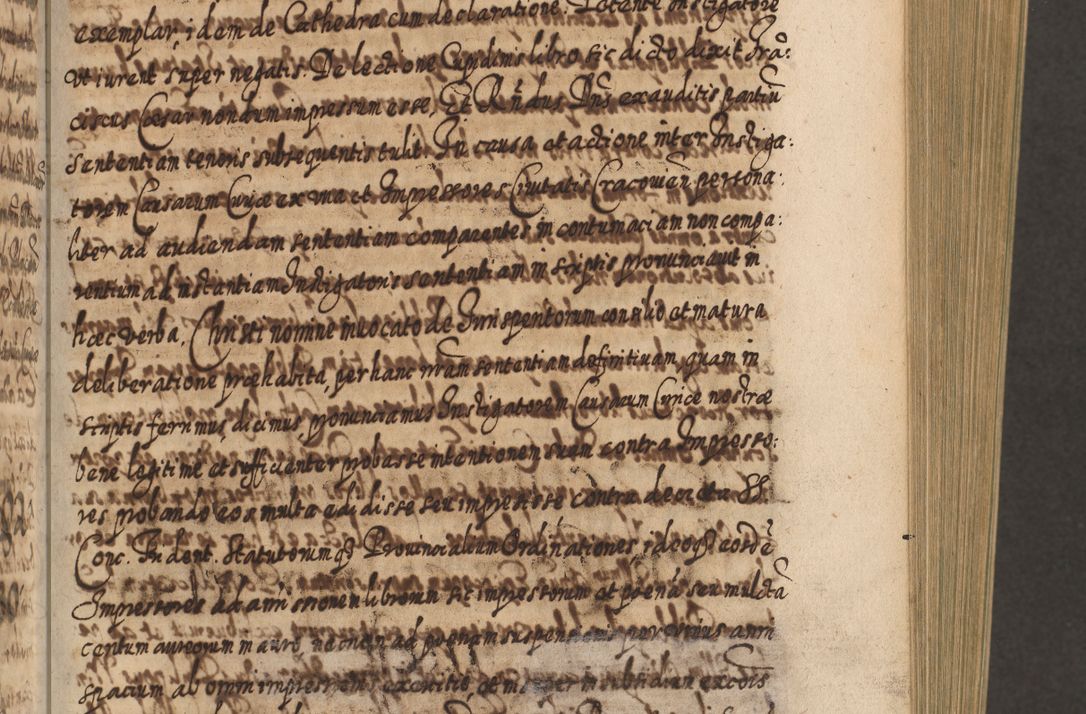 exemplar, idem de Cathedra cum declaratione. Petente Instigatore
ut iurent super negatis. De lectione Cupidinis libro sic dicto dixit Fra:
ciscus Cæsar nondum impressum esse, Et Rn̄dus Dn̄s exauditis partiū
sententiam tenoris subsequentis tulit. In causa et actione inter Instiga:
torem Causarum Curiæ ex una et Impressores Civitatis Cracovień persona:
liter ad audiendam sententiam comparentes in contumaciam non compa:
rentium ad instantiam Instigatoris sententiam in scriptis pronunciavit in
hæc verba. Christi nomine invocato de Iurisperitorum consilio et matura
deliberatione præhabita, per hanc nrām sententiam definitivam, quam in
scriptis ferimus, dicimus, pronunciamus Instigatorem Causarum Curiæ nostræ
bene legitime et sufficienter probasse intentionem suam contra Impresso:
res probando eos multa edidisse seu impressisse contra decreta SS.
Conc. Trident. Statutorumq3 Provincialium Ordinationes ideoq3 eosdē
Impressores ad amissionem librorum sic impressorum et poenā seu mulctā
centum aureorum in auro, necnon ad poenam suspensionis per unius anni
spacium ab omni impressionis exercitio, et in subsidium excōis